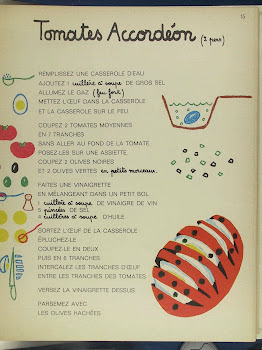 15
Tomates Accordéon (2 pers)
REMPLISSEZ UNE CASSEROLE D'EAU
AJOUTEZ 1 cuillère à soupe DE GROS SEL
ALLUMEZ LE GAZ (feu fort)
METTEZ L'ŒUF DANS LA CASSEROLE
ET LA CASSEROLE SUR LE FEU
COUPEZ 2 TOMATES MOYENNES
EN 7 TRANCHES
SANS ALLER AU FOND DE LA TOMATE
POSEZ-LES SUR UNE ASSIETTE
COUPEZ 2 OLIVES NOIRES
ET 2 OLIVES VERTES en petits morceaux.
FAITES UNE VINAIGRETTE
EN MÉLANGEANT DANS UN PETIT BOL
1 cuillère à soupe DE VINAIGRE DE VIN
5 pincées DE SEL
4 cuillères à soupe D'HUILE
SORTEZ L'ŒUF DE LA CASSEROLE
ÉPLUCHEZ-LE
COUPEZ-LE EN DEUX
PUIS EN 6 TRANCHES
INTERCALEZ LES TRANCHES D'ŒUF
ENTRE LES TRANCHES DES TOMATES
VERSEZ LA VINAIGRETTE DESSUS
PARSEMEZ AVEC
LES OLIVES HACHÉES